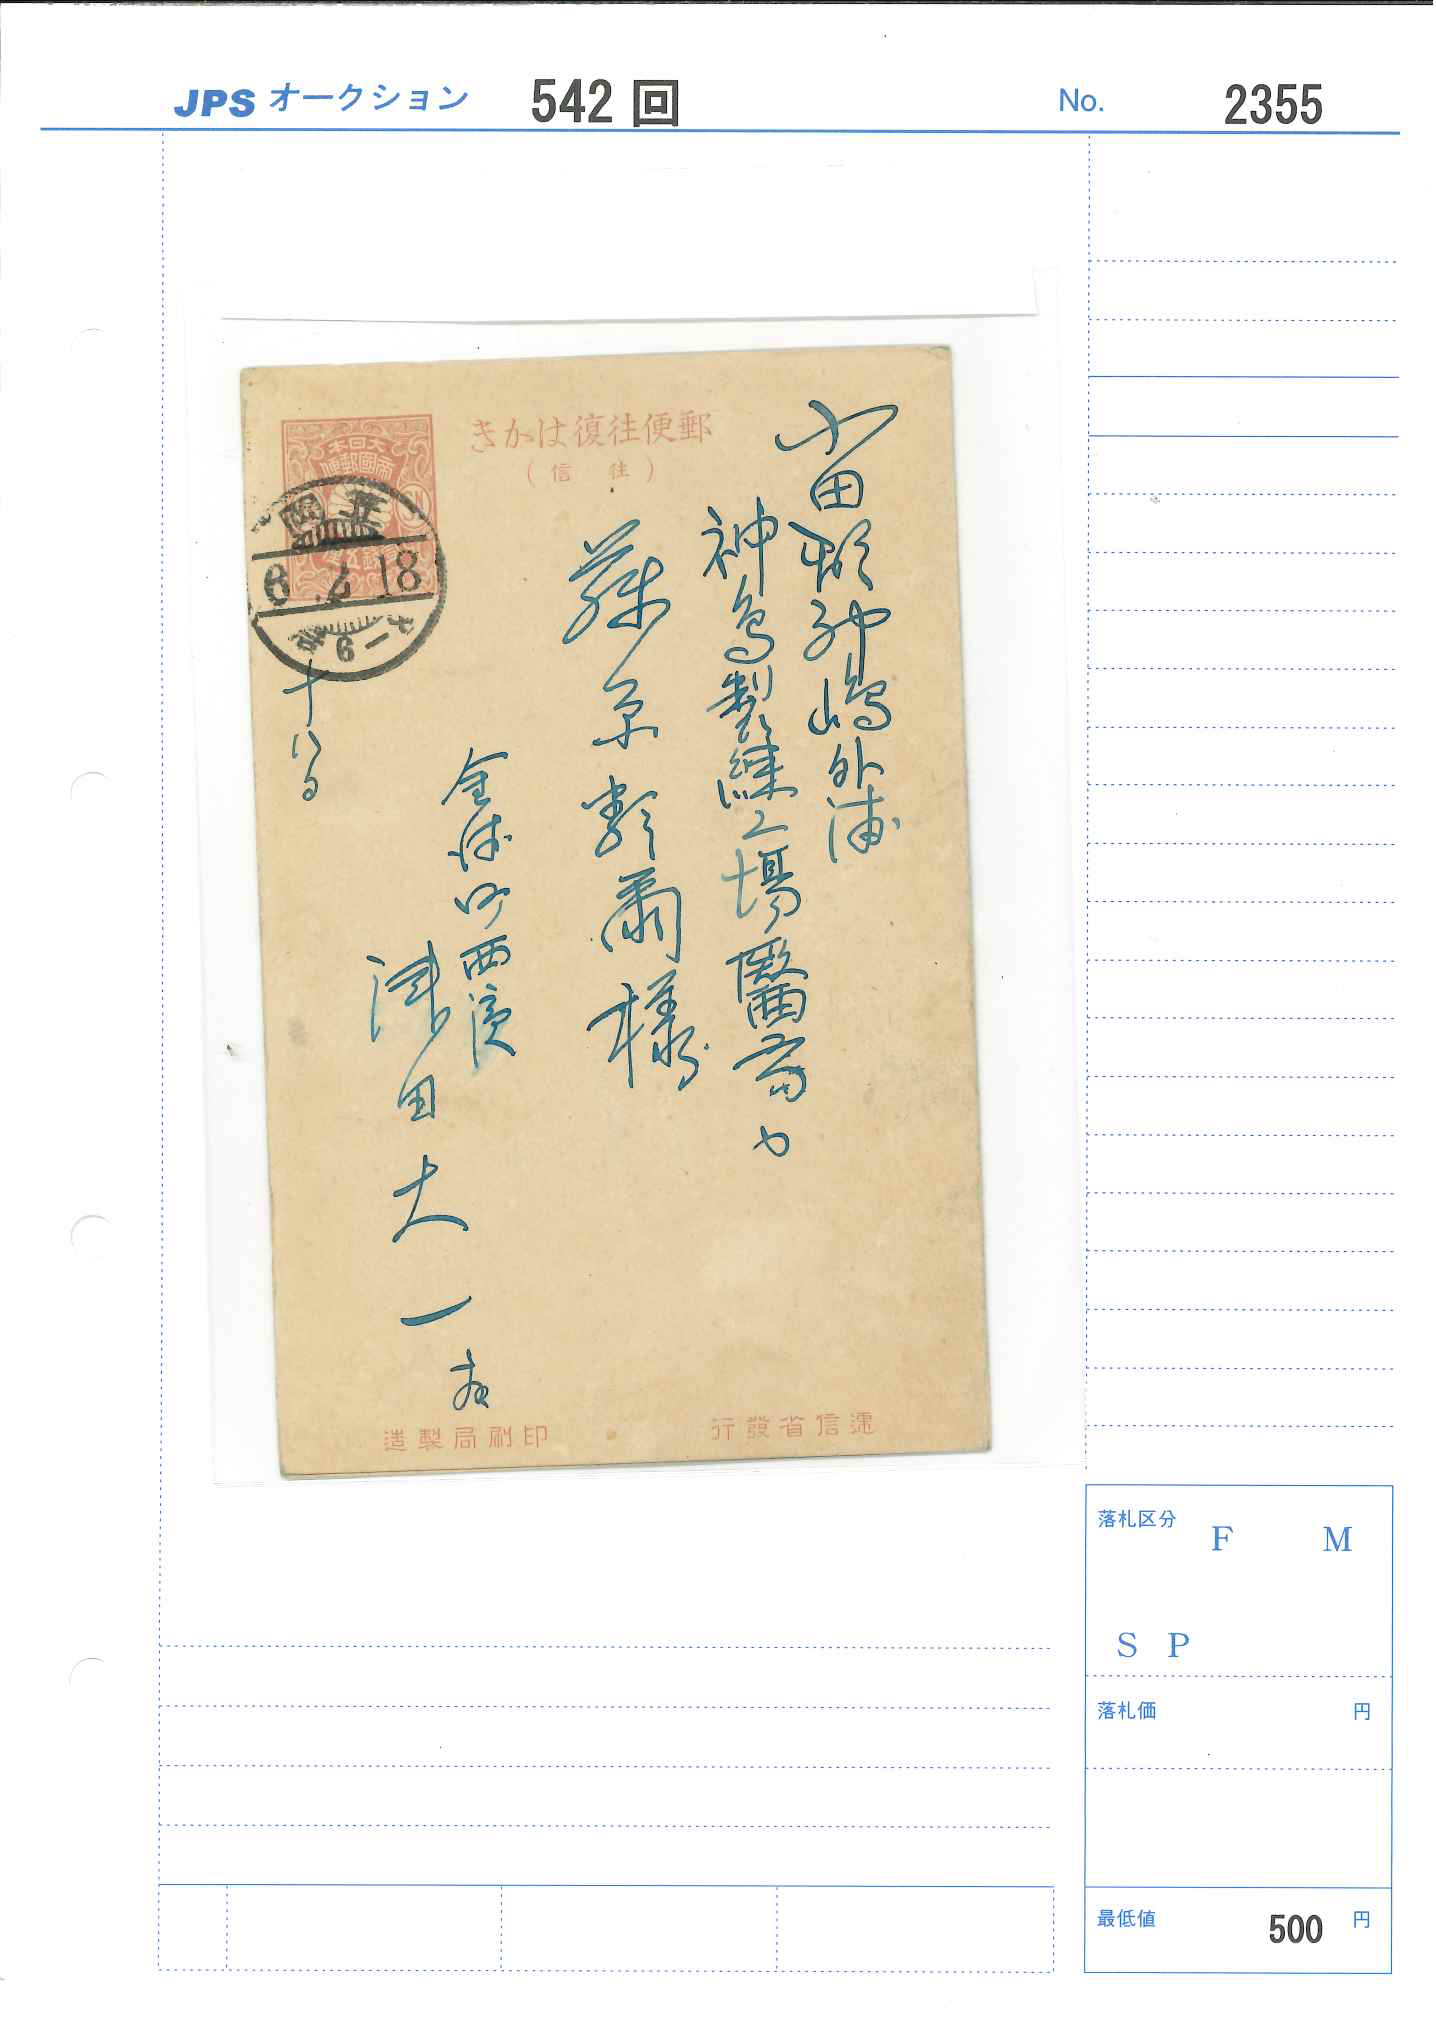 JPS オークション 542 回 No. 2355
郵便往復はかき
(往信)
大日本
帝國郵便
6.4.18
小田郡神嶋外浦
神島製錬工場醫局内
藤原 爾様
十八日
金浦町西濱
津田大一
逓信省發行
印刷局製造
落札区分
F M
S P
落札価 円
最低値 500 円